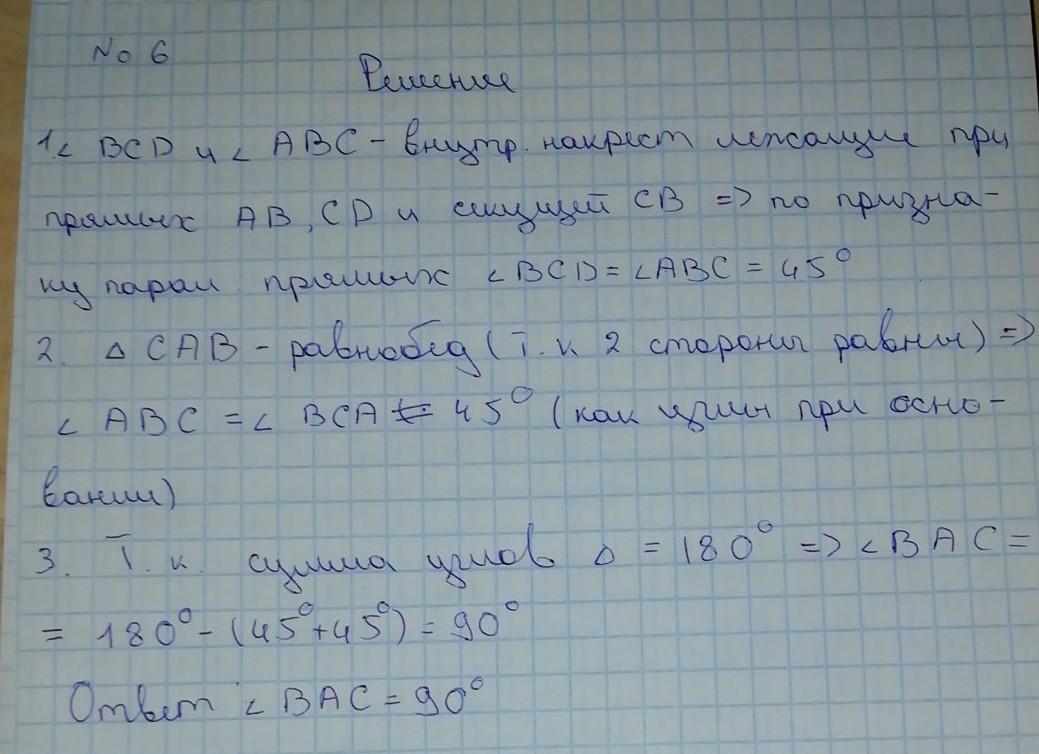 No 6
Решение
1. ∠ BCD и ∠ ABC - внутр. накрест лежащие при
прямых AB, CD и секущей CB => по призна-
ку парал прямых ∠BCD = ∠ABC = 45°
2. Δ CAB - равнобед (т. к 2 стороны равны) =>
∠ ABC = ∠ BCA = 45° (как углы при осно-
вании)
3. Т. к. сумма углов Δ = 180° => ∠BAC =
= 180° - (45° + 45°) = 90°
Ответ ∠BAC = 90°